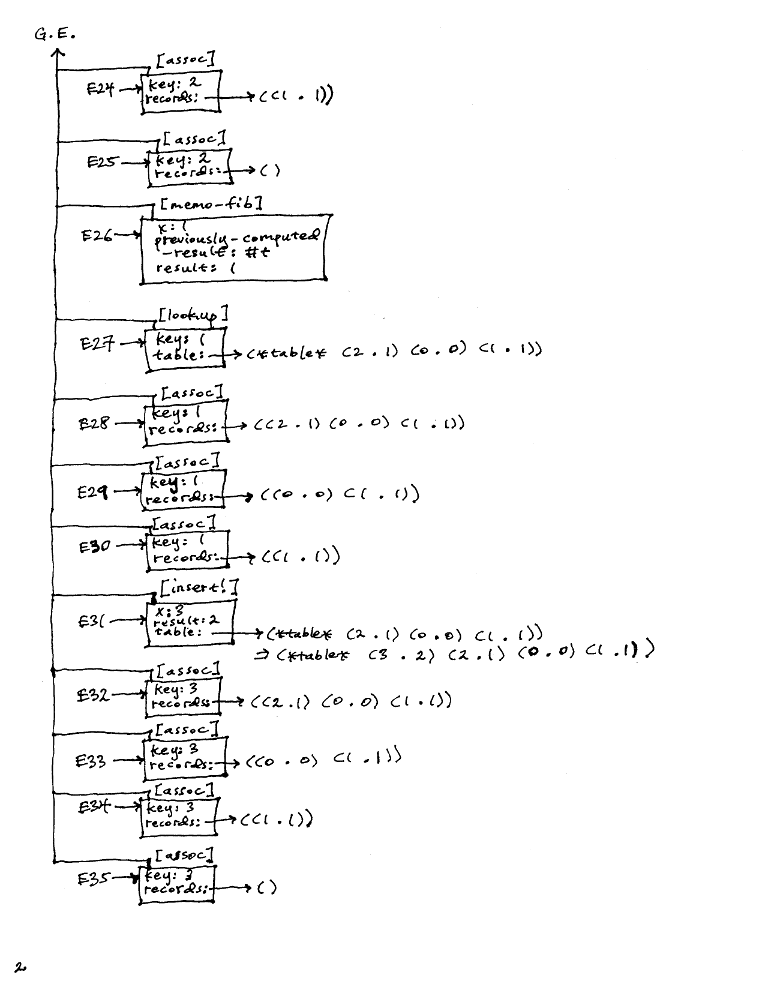 G.E.
[assoc]
E24 key: 2
records: ((1 . 1))
[assoc]
E25 key: 2
records: ()
[memo-fib]
E26 x: 1
previously-computed
-result: #t
result: 1
[lookup]
E27 key: 1
table: (*table* (2 . 1) (0 . 0) (1 . 1))
[assoc]
E28 key: 1
records: ((2 . 1) (0 . 0) (1 . 1))
[assoc]
E29 key: 1
records: ((0 . 0) (1 . 1))
[assoc]
E30 key: 1
records: ((1 . 1))
[insert!]
E31 x: 3
result: 2
table: (*table* (2 . 1) (0 . 0) (1 . 1))
⇒ (*table* (3 . 2) (2 . 1) (0 . 0) (1 . 1))
[assoc]
E32 key: 3
records: ((2 . 1) (0 . 0) (1 . 1))
[assoc]
E33 key: 3
records: ((0 . 0) (1 . 1))
[assoc]
E34 key: 3
records: ((1 . 1))
[assoc]
E35 key: 3
records: ()
2